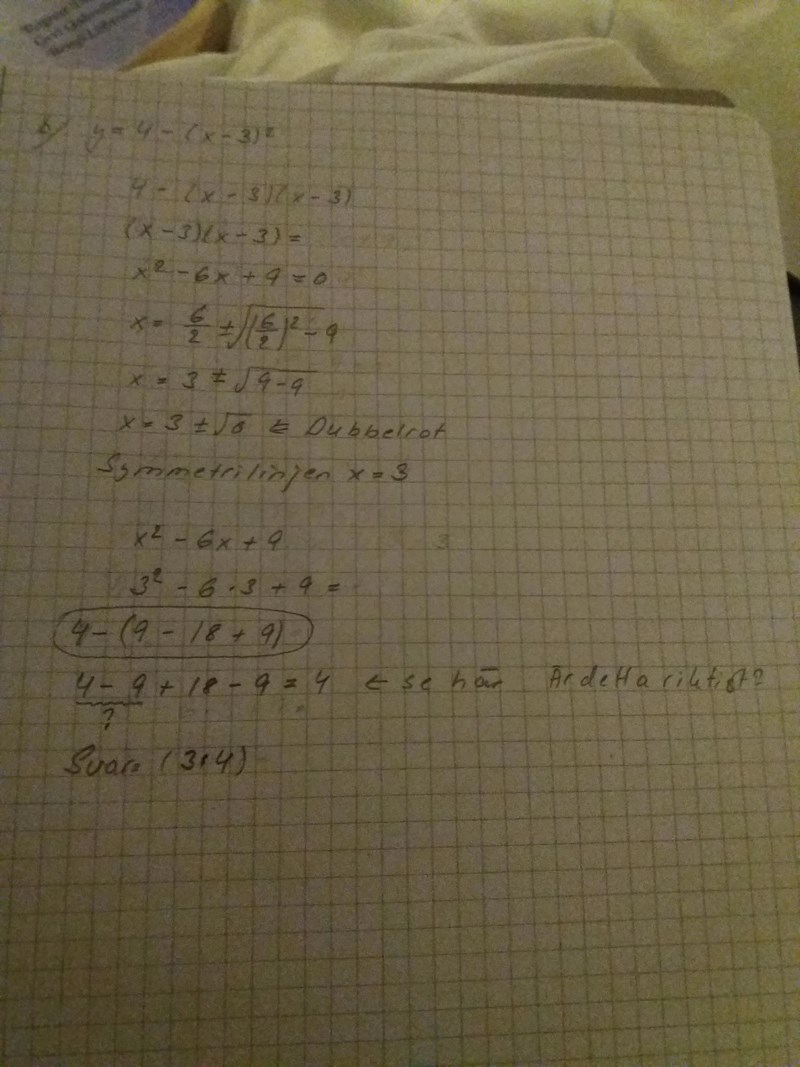 b) y = 4 - (x - 3)²
4 - (x - 3)(x - 3)
(x - 3)(x - 3) =
x² - 6x + 9 = 0
x = 6/2 ± √((6/2)² - 9
x = 3 ± √(9 - 9)
x = 3 ± √0 ⇐ Dubbelrot
Symmetrilinjen x = 3
x² - 6x + 9
3² - 6 · 3 + 9 =
4 - (9 - 18 + 9)
4 - 9 + 18 - 9 = 4 ← se här Är detta riktigt?
?
Svar: (3,4)